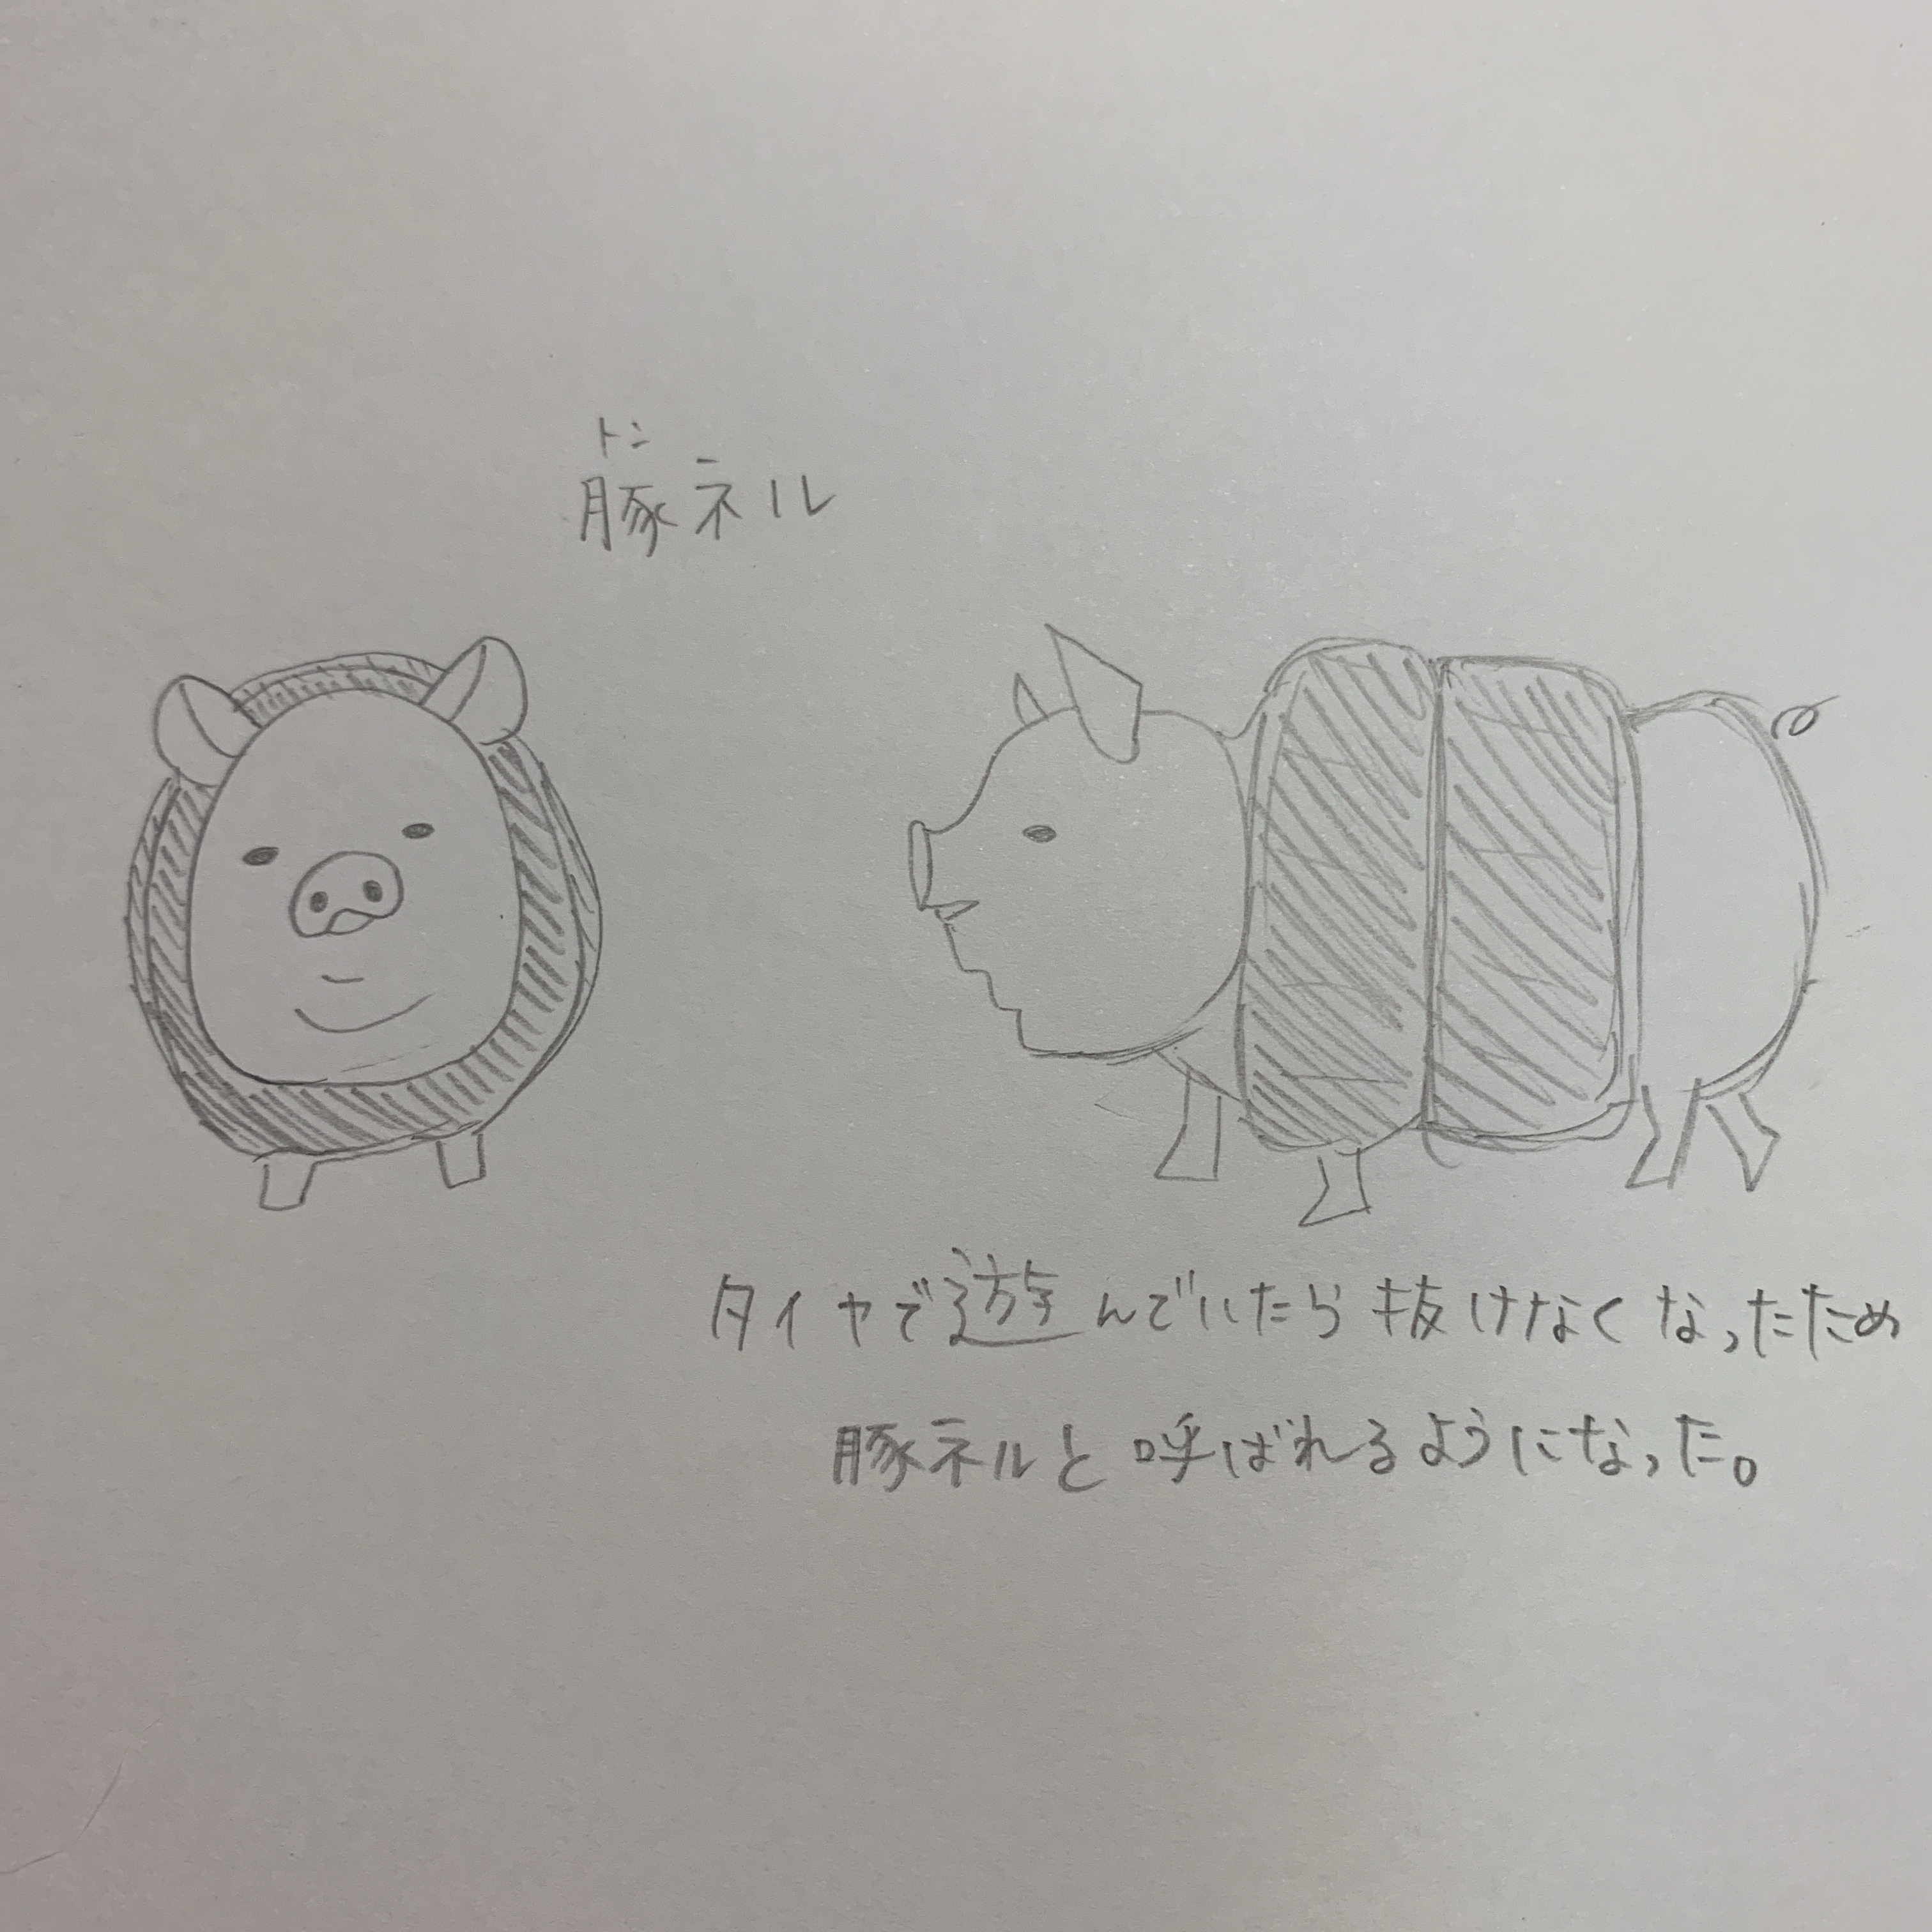 トン
豚ネル
タイヤで遊んでいたら抜けなくなったため
豚ネルと呼ばれるようになった。